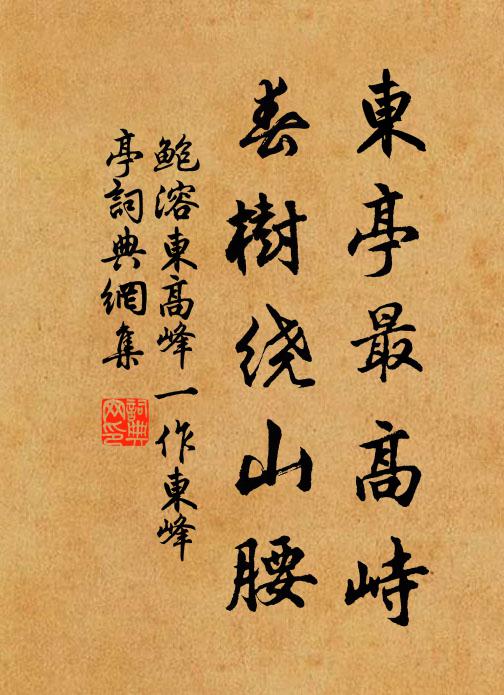 東亭最高峙
春樹绕山腰
鲍溶東高峰一作東峰
亭詞典網集
詞典网印